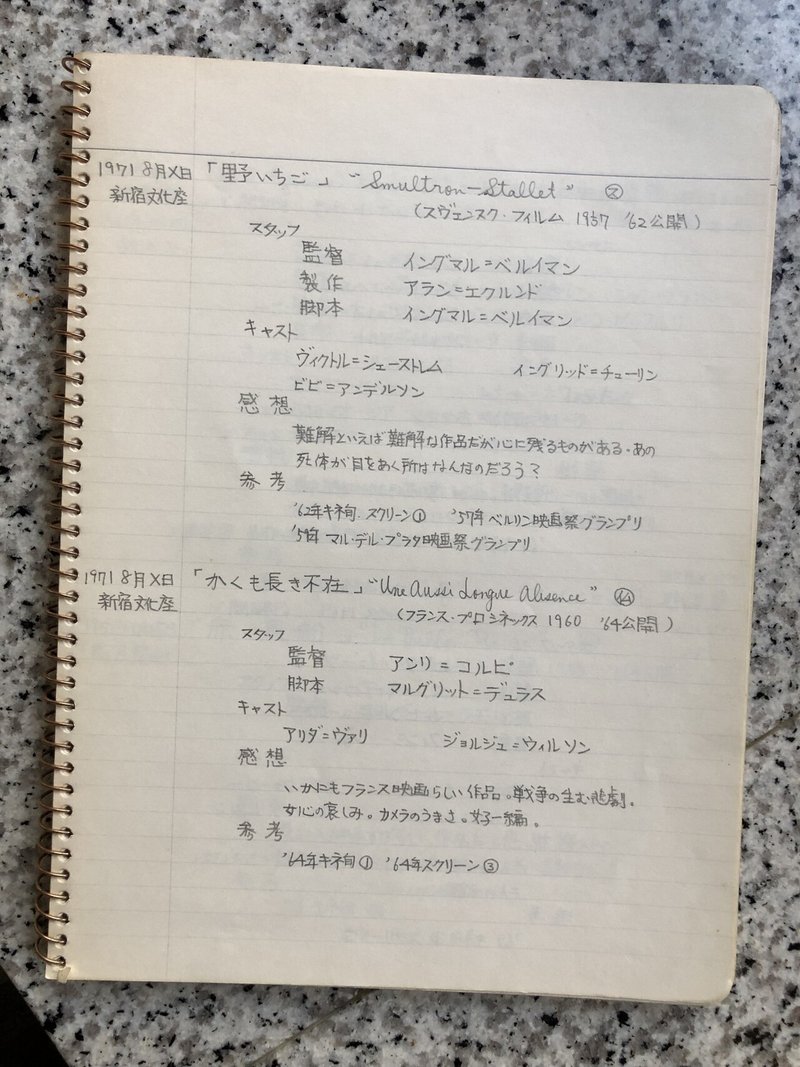 1971 8月X日 「野いちご」 "Smultron-Stallet" ㋜
新宿文化座
(スヴェンスク・フィルム 1957 '62公開)
スタッフ
監督 イングマル=ベルイマン
製作 アラン=エクルンド
脚本 イングマル=ベルイマン
キャスト
ヴィクトル=シェーストレム イングリッド=チューリン
ビビ=アンデルソン
感想
難解といえば難解な作品だが心に残るものがある。あの
死体が目をあく所はなんなのだろう?
参考
'62年キネ旬 スクリーン① '57年 ベルリン映画祭グランプリ
'59年 マル・デル・プラタ映画祭グランプリ
1971 8月X日 「かくも長き不在」 "Une Aussi Longue Absence"
新宿文化座
(フランス・プロシネックス 1960 '64公開)
スタッフ
監督 アンリ=コルピ
脚本 マルグリット=デュラス
キャスト
アリダ=ヴァリ ジョルジュ=ウィルソン
感想
いかにもフランス映画らしい作品。戦争の生む悲劇。
女心の哀しみ。カメラのうまさ。好一編。
参考
'64年キネ旬① '64年スクリーン③